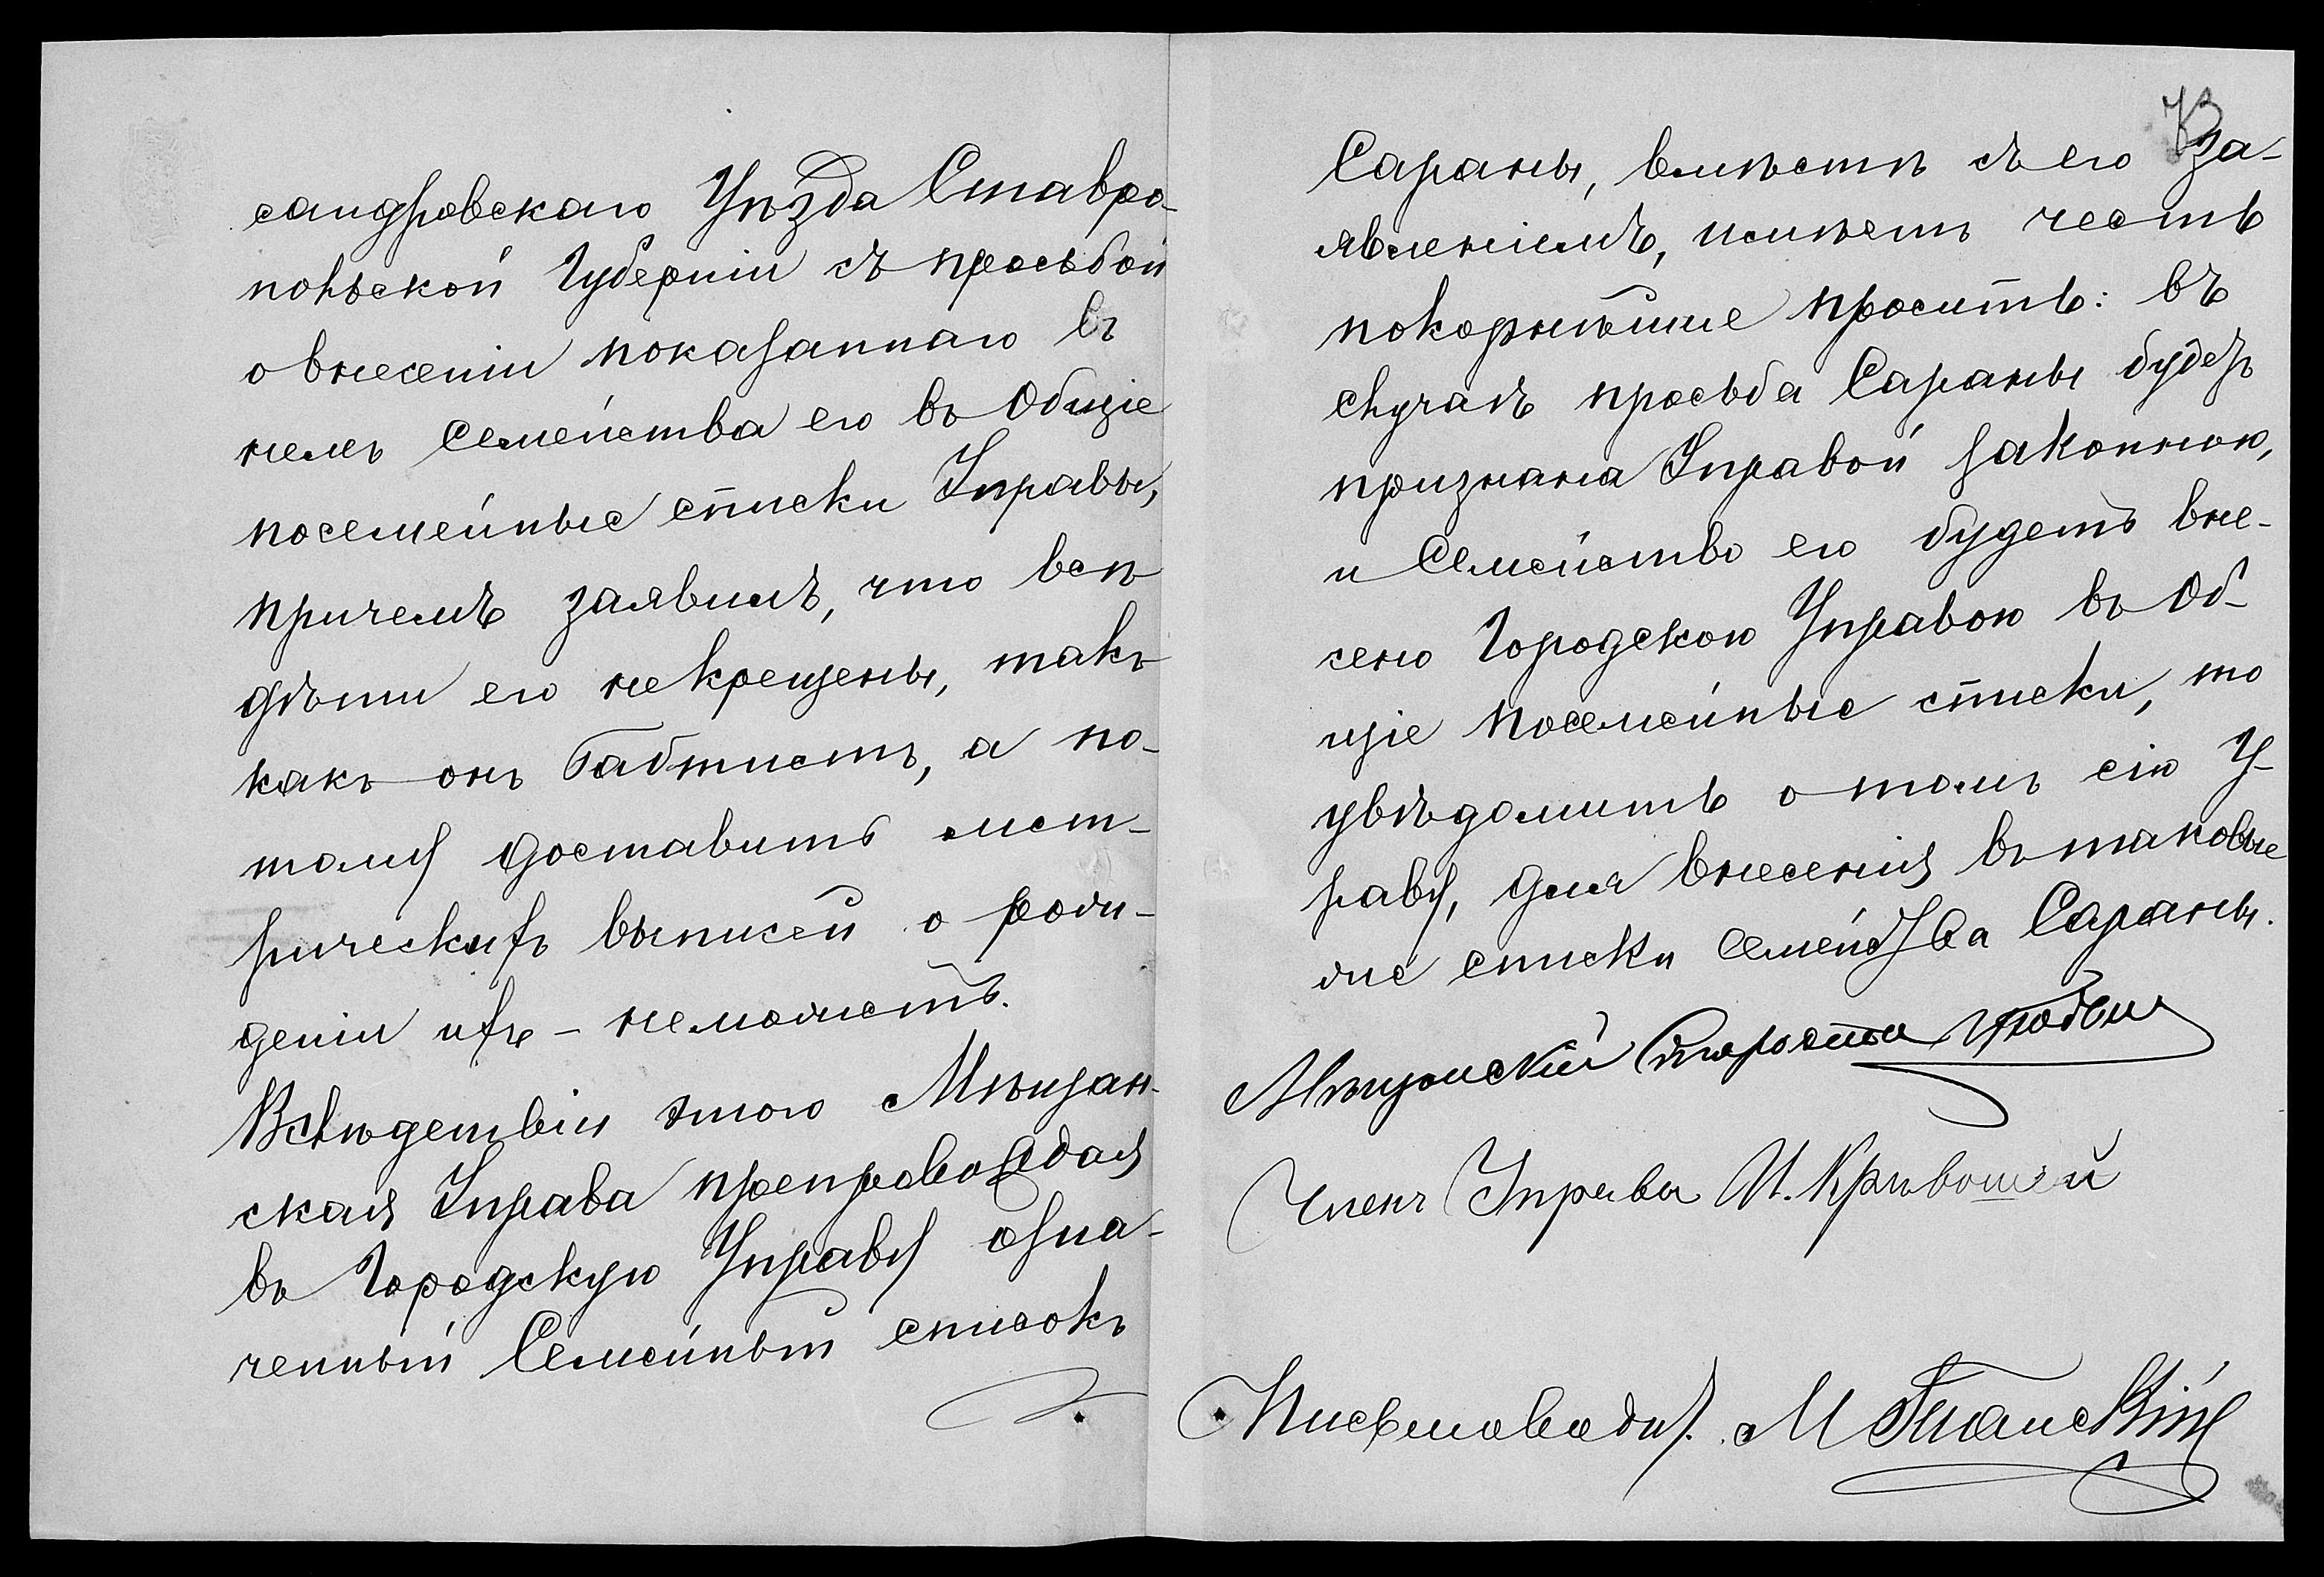 сандровскаго Уѣзда Ставро-
польской Губерніи съ просьбой
о внесеніи показаннаго въ
немъ Семейства его въ Общіе
посемейные списки Управы,
причемъ заявилъ, что всѣ
дѣти его не крещены, такъ
какъ онъ Баптистъ, а по-
тому доставить мет-
рическихъ выписей о рож-
деніи ихъ - не можетъ.
Вслѣдствіи этого Мѣщан-
ская Управа препровождая
въ Городскую Управу озна-
ченный Семейный списокъ
73
Сараны, вмѣстѣ съ его за-
явленіемъ, имѣетъ честь
покорнѣйше просить: въ
случаѣ просьба Сараны будетъ
признана Управой законною,
и Семейство его будетъ вне-
сено Городскою Управою въ Об-
щіе посемейные списки, то
увѣдомить о томъ сію Уп-
раву, для внесенія въ таковые
же списки Семейства Сараны.
Мѣщанскій Староста
Членъ Управы И. Кривошей
Письмоводит. М